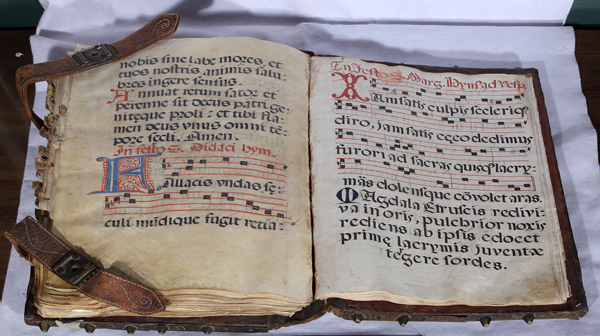 nobis sine labe mores, et
tuos nostris, animis salu:
bres ingere sensus.
Annuat rerum sator et
perenne sit decus patri ge:
niteque proli: et tibi fla:
men deus vnus omni tẽ:
pore secli. Amen.
In festo S. Didaci hym.
Fallacis vndas se:
culi mũdique fugit retia:
In festo S. Marg. Hymn ad vesp
Iam satis cultus
diro, jam satis cęco dedimus
furori ad sacras quisq lacry:
mãs dolensque cõvolet aras.
Magdala Etruscis redivi:
va in oris, pulchrior noxis
rediens ab ipsis edocet
primę lacrymis juventæ
tegere sordes.